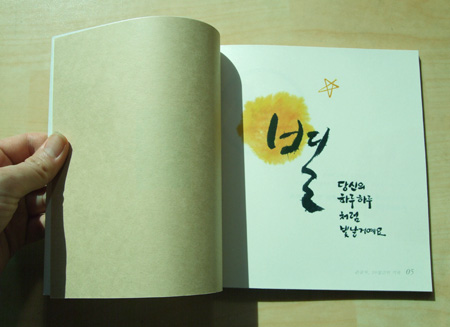 별
당신의
하루하루
처럼
빛날거예요
05